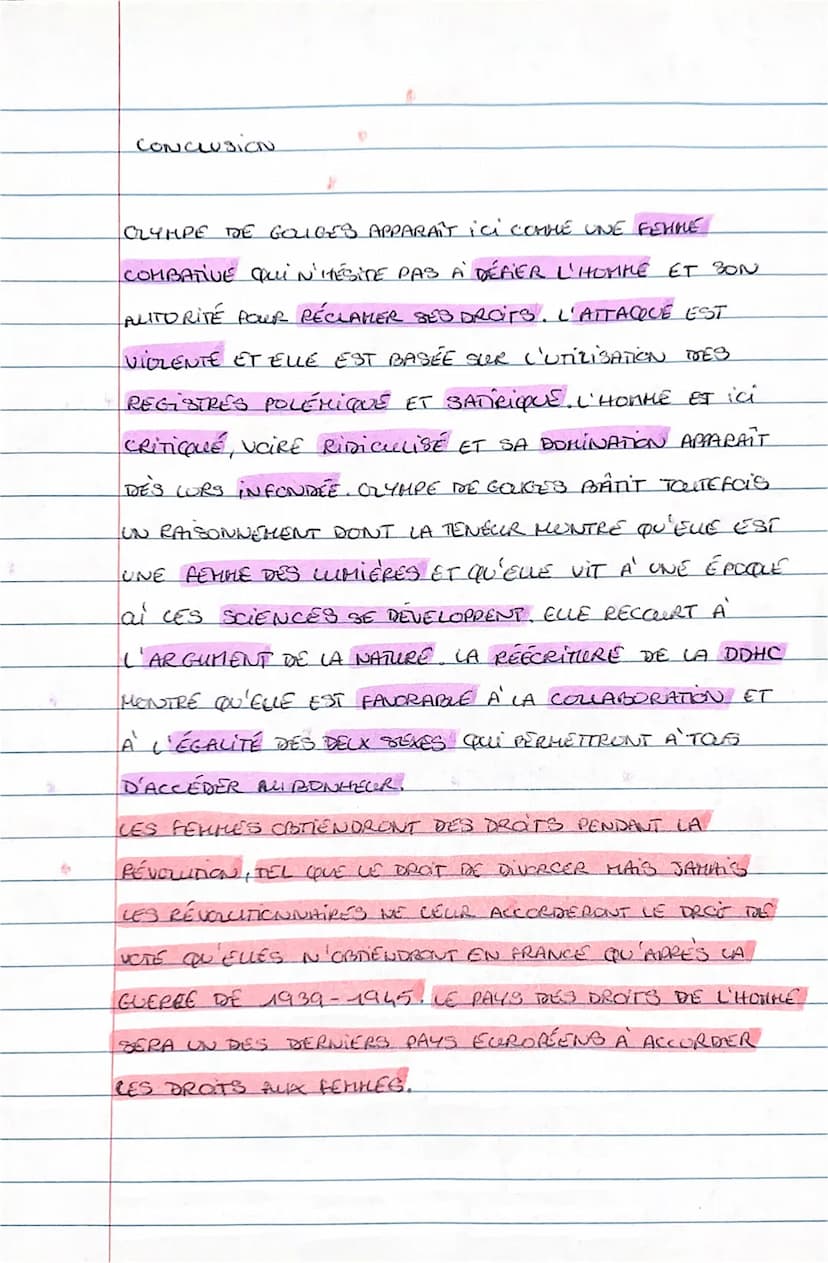 CONCLUSION
OLYMPE DE GOUGES APPARAÎT ICI COMME UNE FEMME
COMBATIVE QUI N'HÉSITE PAS À DÉFIER L'HOMME ET SON
AUTORITÉ POUR RÉCLAMER SES DROITS. L'ATTAQUE EST
VIOLENTE ET ELLE EST BASÉE SUR L'UTILISATION DES
REGISTRES POLÉMIQUE ET SATIRIQUE. L'HOMME EST ICI
CRITIQUÉ, VOIRE RIDICULISÉ ET SA DOMINATION APPARAÎT
DÈS LORS INFONDÉE. OLYMPE DE GOUGES BÂTIT TOUTEFOIS
UN RAISONNEMENT DONT LA TENEUR MONTRE QU'ELLE EST
UNE FEMME DES LUMIÈRES ET QU'ELLE VIT À UNE ÉPOQUE
OÙ LES SCIENCES SE DÉVELOPPENT. ELLE RECOURT À
L'ARGUMENT DE LA NATURE. LA RÉÉCRITURE DE LA DDHC
MONTRE QU'ELLE EST FAVORABLE À LA COLLABORATION ET
À L'ÉGALITÉ DES DEUX SEXES QUI PERMETTRONT À TOUS
D'ACCÉDER AU BONHEUR.
LES FEMMES OBTIENDRONT DES DROITS PENDANT LA
RÉVOLUTION, TEL QUE LE DROIT DE DIVORCER MAIS JAMAIS
LES RÉVOLUTIONNAIRES NE LEUR ACCORDERONT LE DROIT DE
VOTE QU'ELLES N'OBTIENDRONT EN FRANCE QU'APRÈS LA
GUERRE DE 1939-1945. LE PAYS DES DROITS DE L'HOMME
SERA UN DES DERNIERS PAYS EUROPÉENS À ACCORDER
LES DROITS AUX FEMMES.